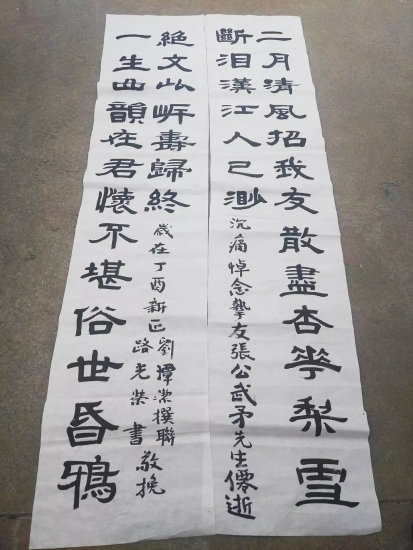 二月清風招我友散盡杏華梨雪
斷泪漢江人已渺
沉痛悼念摯友張公武矛先生僊逝
一生曲韻在君懷不堪俗世昏鴉
絕文壽歸終
歲在丁酉新正劉潭撰聯
路光榮書敬挽